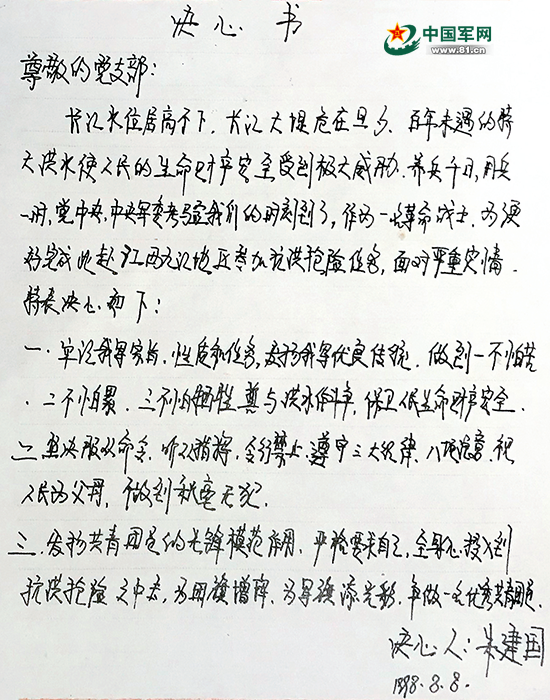 决心书
中国军网
www.81.cn
尊敬的党支部：
长江水位居高不下，长江大堤危在旦夕，百年未遇的特
大洪水使人民的生命财产安全受到极大威胁。养兵千日，用兵
一时，党中央、中央军委考验我们的时刻到了，作为一名革命战士，为更
好完成此赴江西九江地区参加抗洪抢险任务，面对严重灾情，
特表决心如下：
一、牢记我军宗旨、性质和任务，发扬我军优良传统，做到一不怕苦
、二不怕累、三不怕牺牲，与洪水作斗争，保卫人民生命财产安全。
二、坚决服从命令，听从指挥，令行禁止，遵守三大纪律、八项注意，视
人民为父母，做到秋毫无犯。
三、发扬共青团员的先锋模范作用，严格要求自己，全身心投入到
抗洪抢险之中去，为团旗增辉，为军旗添光彩，争做一名优秀共青团员。
决心人：朱建国
1998.8.8.